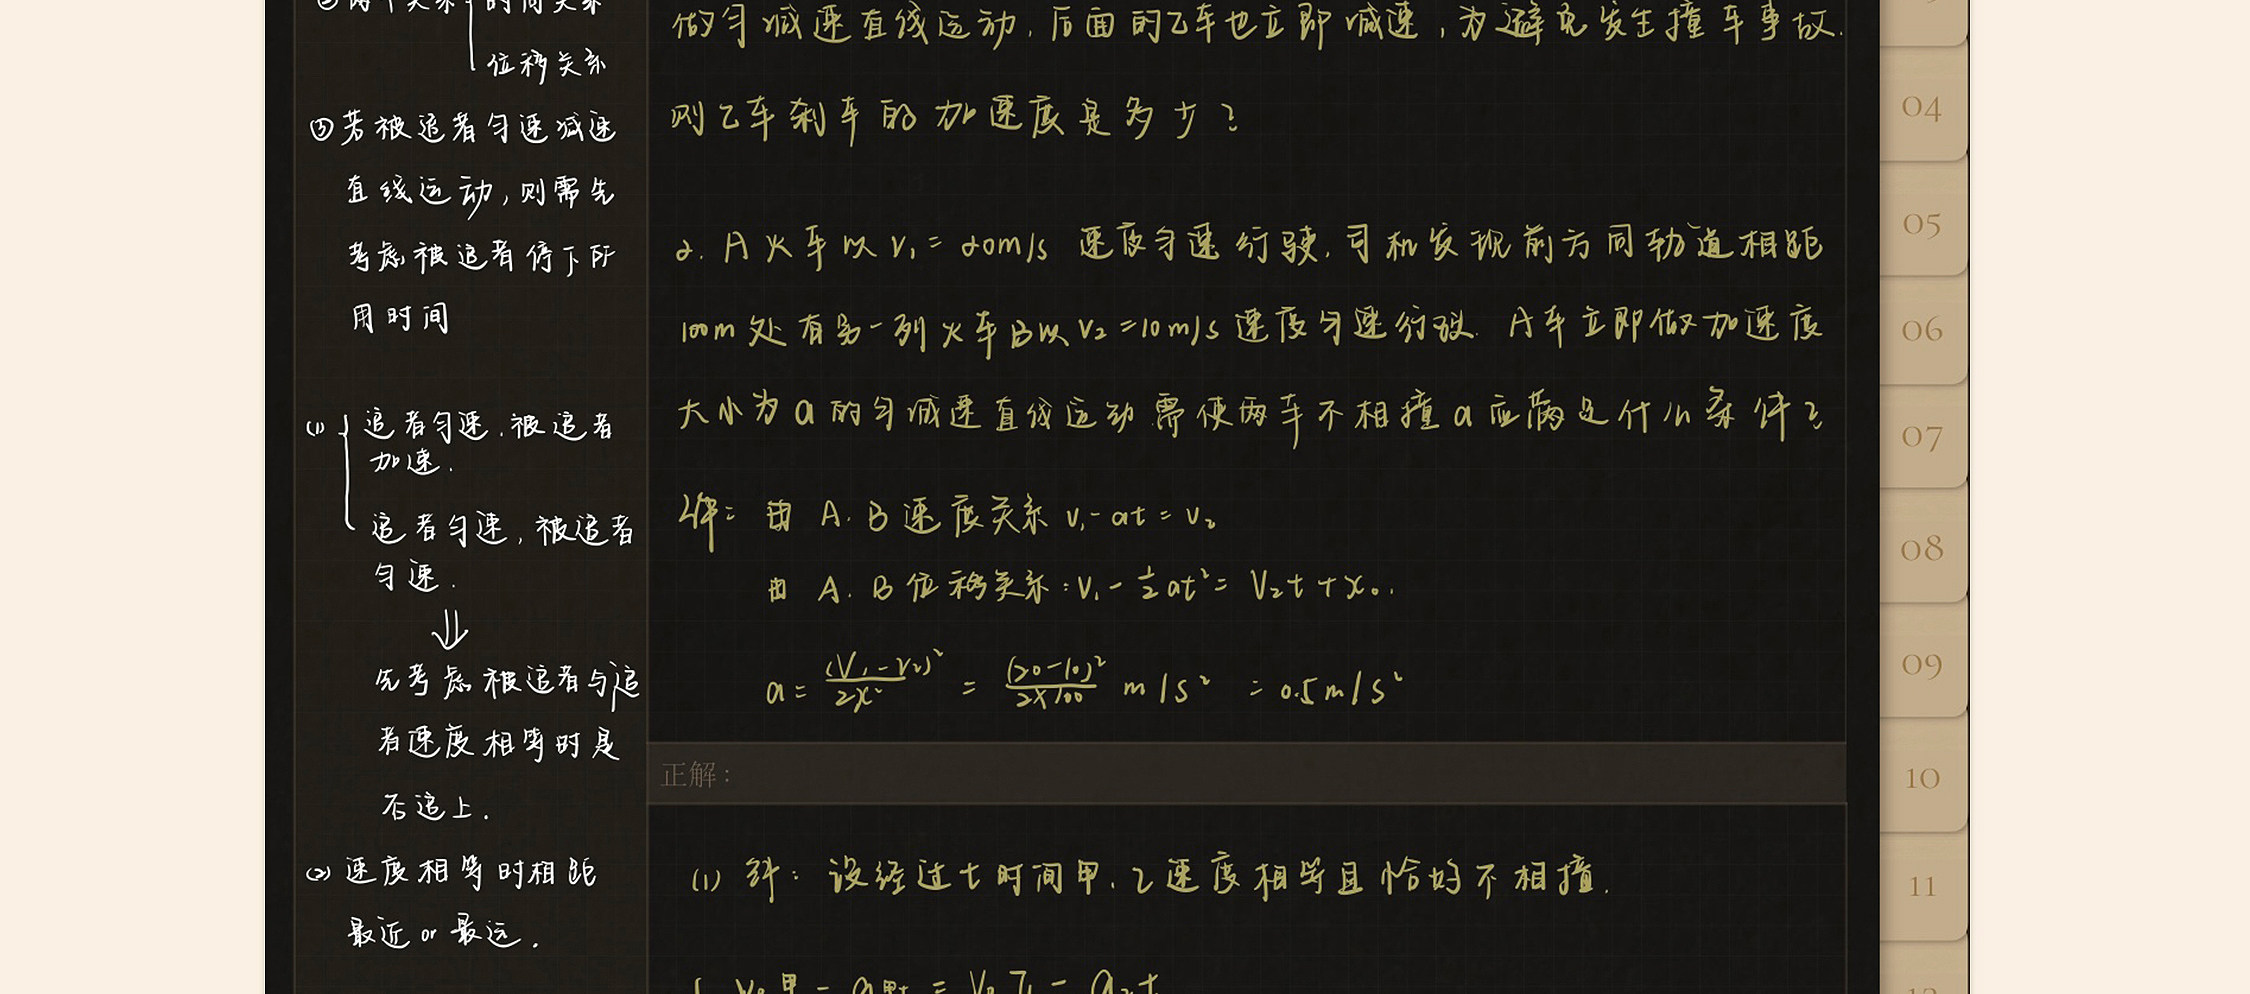 ②两个关系 时间关系
位移关系
③若被追者匀速减速
直线运动,则需先
考虑被追者停下所
用时间
(1) 追者匀速.被追者
加速.
追者匀速,被追者
匀速.
⇓
先考虑被追者与追
者速度相等时是
否追上.
(2) 速度相等时相距
最近 or 最远.
做匀减速直线运动,后面的乙车也立即减速,为避免发生撞车事故.
则乙车刹车的加速度是多少?
2. A火车以v₁=20m/s 速度匀速行驶,司机发现前方同轨道相距
100m处有另一列火车B以v₂=10m/s速度匀速行驶. A车立即做加速度
大小为a的匀减速直线运动.需使两车不相撞a应满足什么条件?
解: 由 A.B速度关系 v₁-at=v₂
由 A.B位移关系:v₁-½at²= v₂t+x₀.
a=(v₁-v₂)²/2x² = (20-10)²/2×100 m/s² = 0.5m/s²
正解:
(1) 解: 设经过t时间甲.乙速度相等且恰好不相撞.
v₀甲-a甲t=v₀乙-a₂t
04
05
06
07
08
09
10
11
12